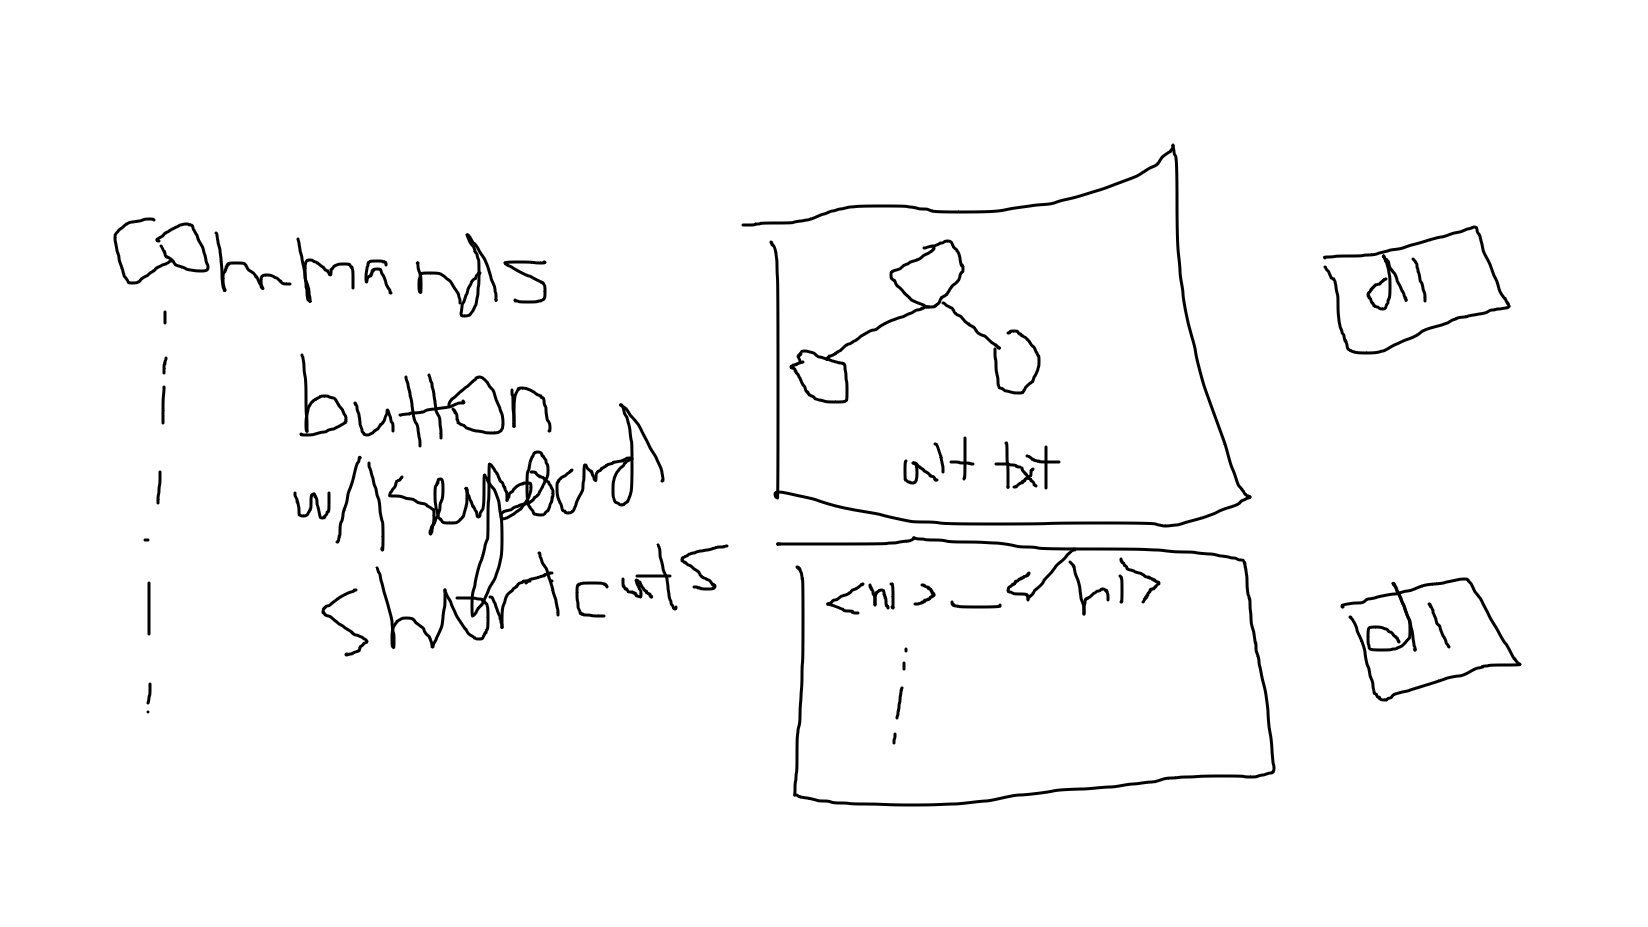 commands
button
w/ keyboard
shortcuts
alt txt
dl
<h1>_</h1>
dl